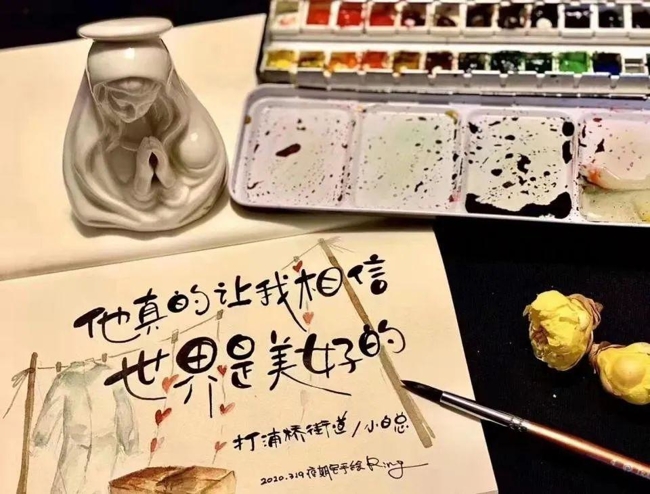 他真的让我相信
世界是美好的
打浦桥街道/小白总
2020.3.19 夜期包手绘 Ring